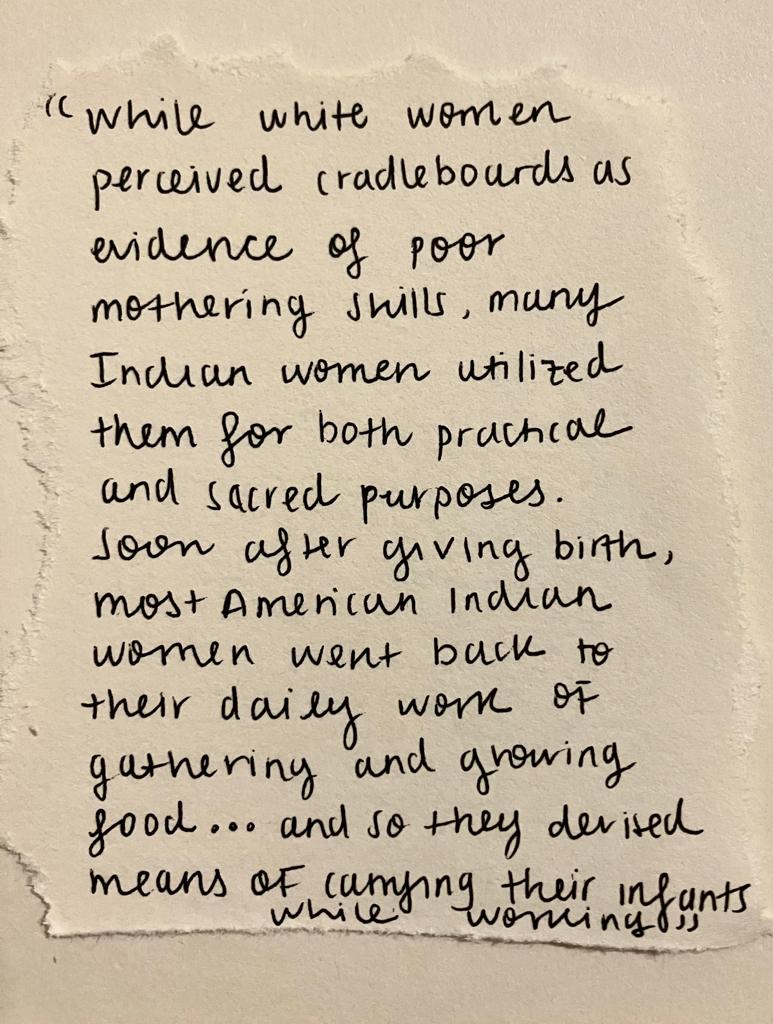 "While white women
perceived cradleboards as
evidence of poor
mothering skills, many
Indian women utilized
them for both practical
and sacred purposes.
Soon after giving birth,
most American Indian
women went back to
their daily work of
gathering and growing
food... and so they devised
means of carrying their infants
while working"